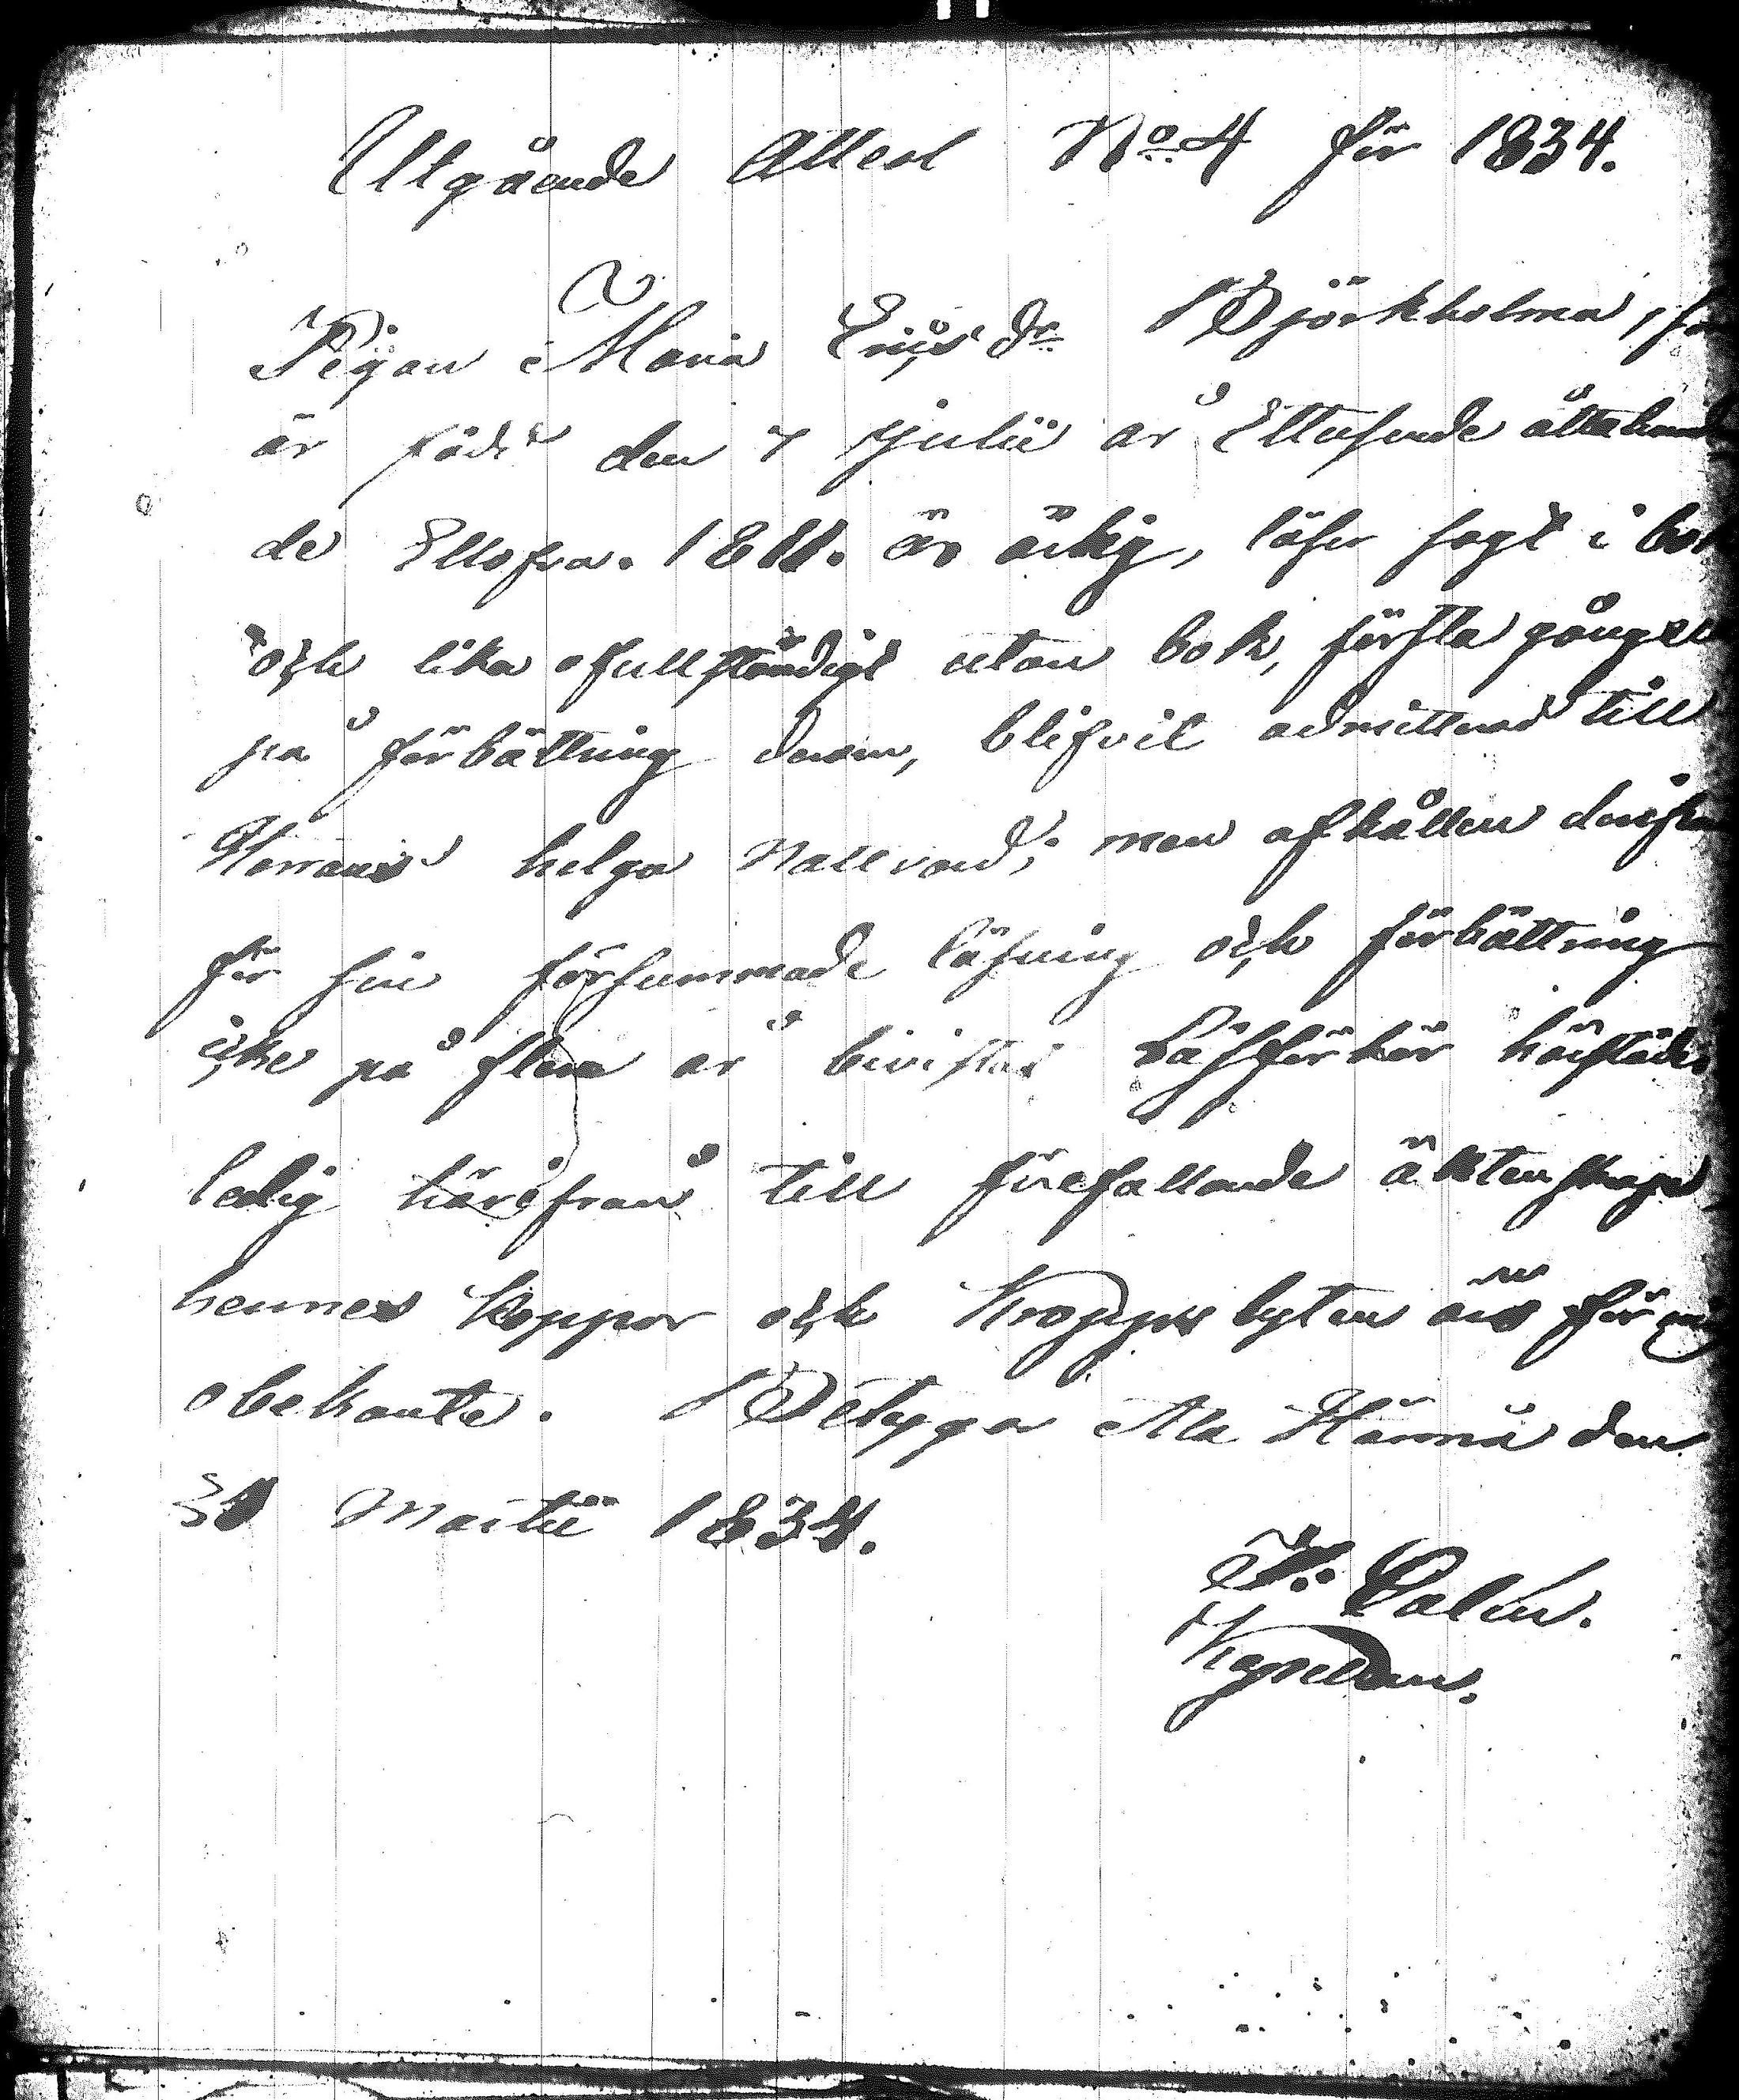 Utgående Attest No 4 för 1834.
Pigan Maria Ericsdr Björkholma, som
är född den 7 Julii år Ettusende åttahund
de Ellofva. 1811. är ärlig, läser sagt i bok
och lika ofullständigt utan bok, första gången
på förbättring derom, blifvit admitterad till
Herrans helga Nattvard; men afhållen
för sin försummade läsning och förbättring
icke på flera år bivistat Läsförhör
ledig härifrån till förefallande äktenskap
hennes koppor och Kropps lyten äro för mig
obekante. Betygar Ala Hännä den
Martii 1834.
Calen.
Kapellan.